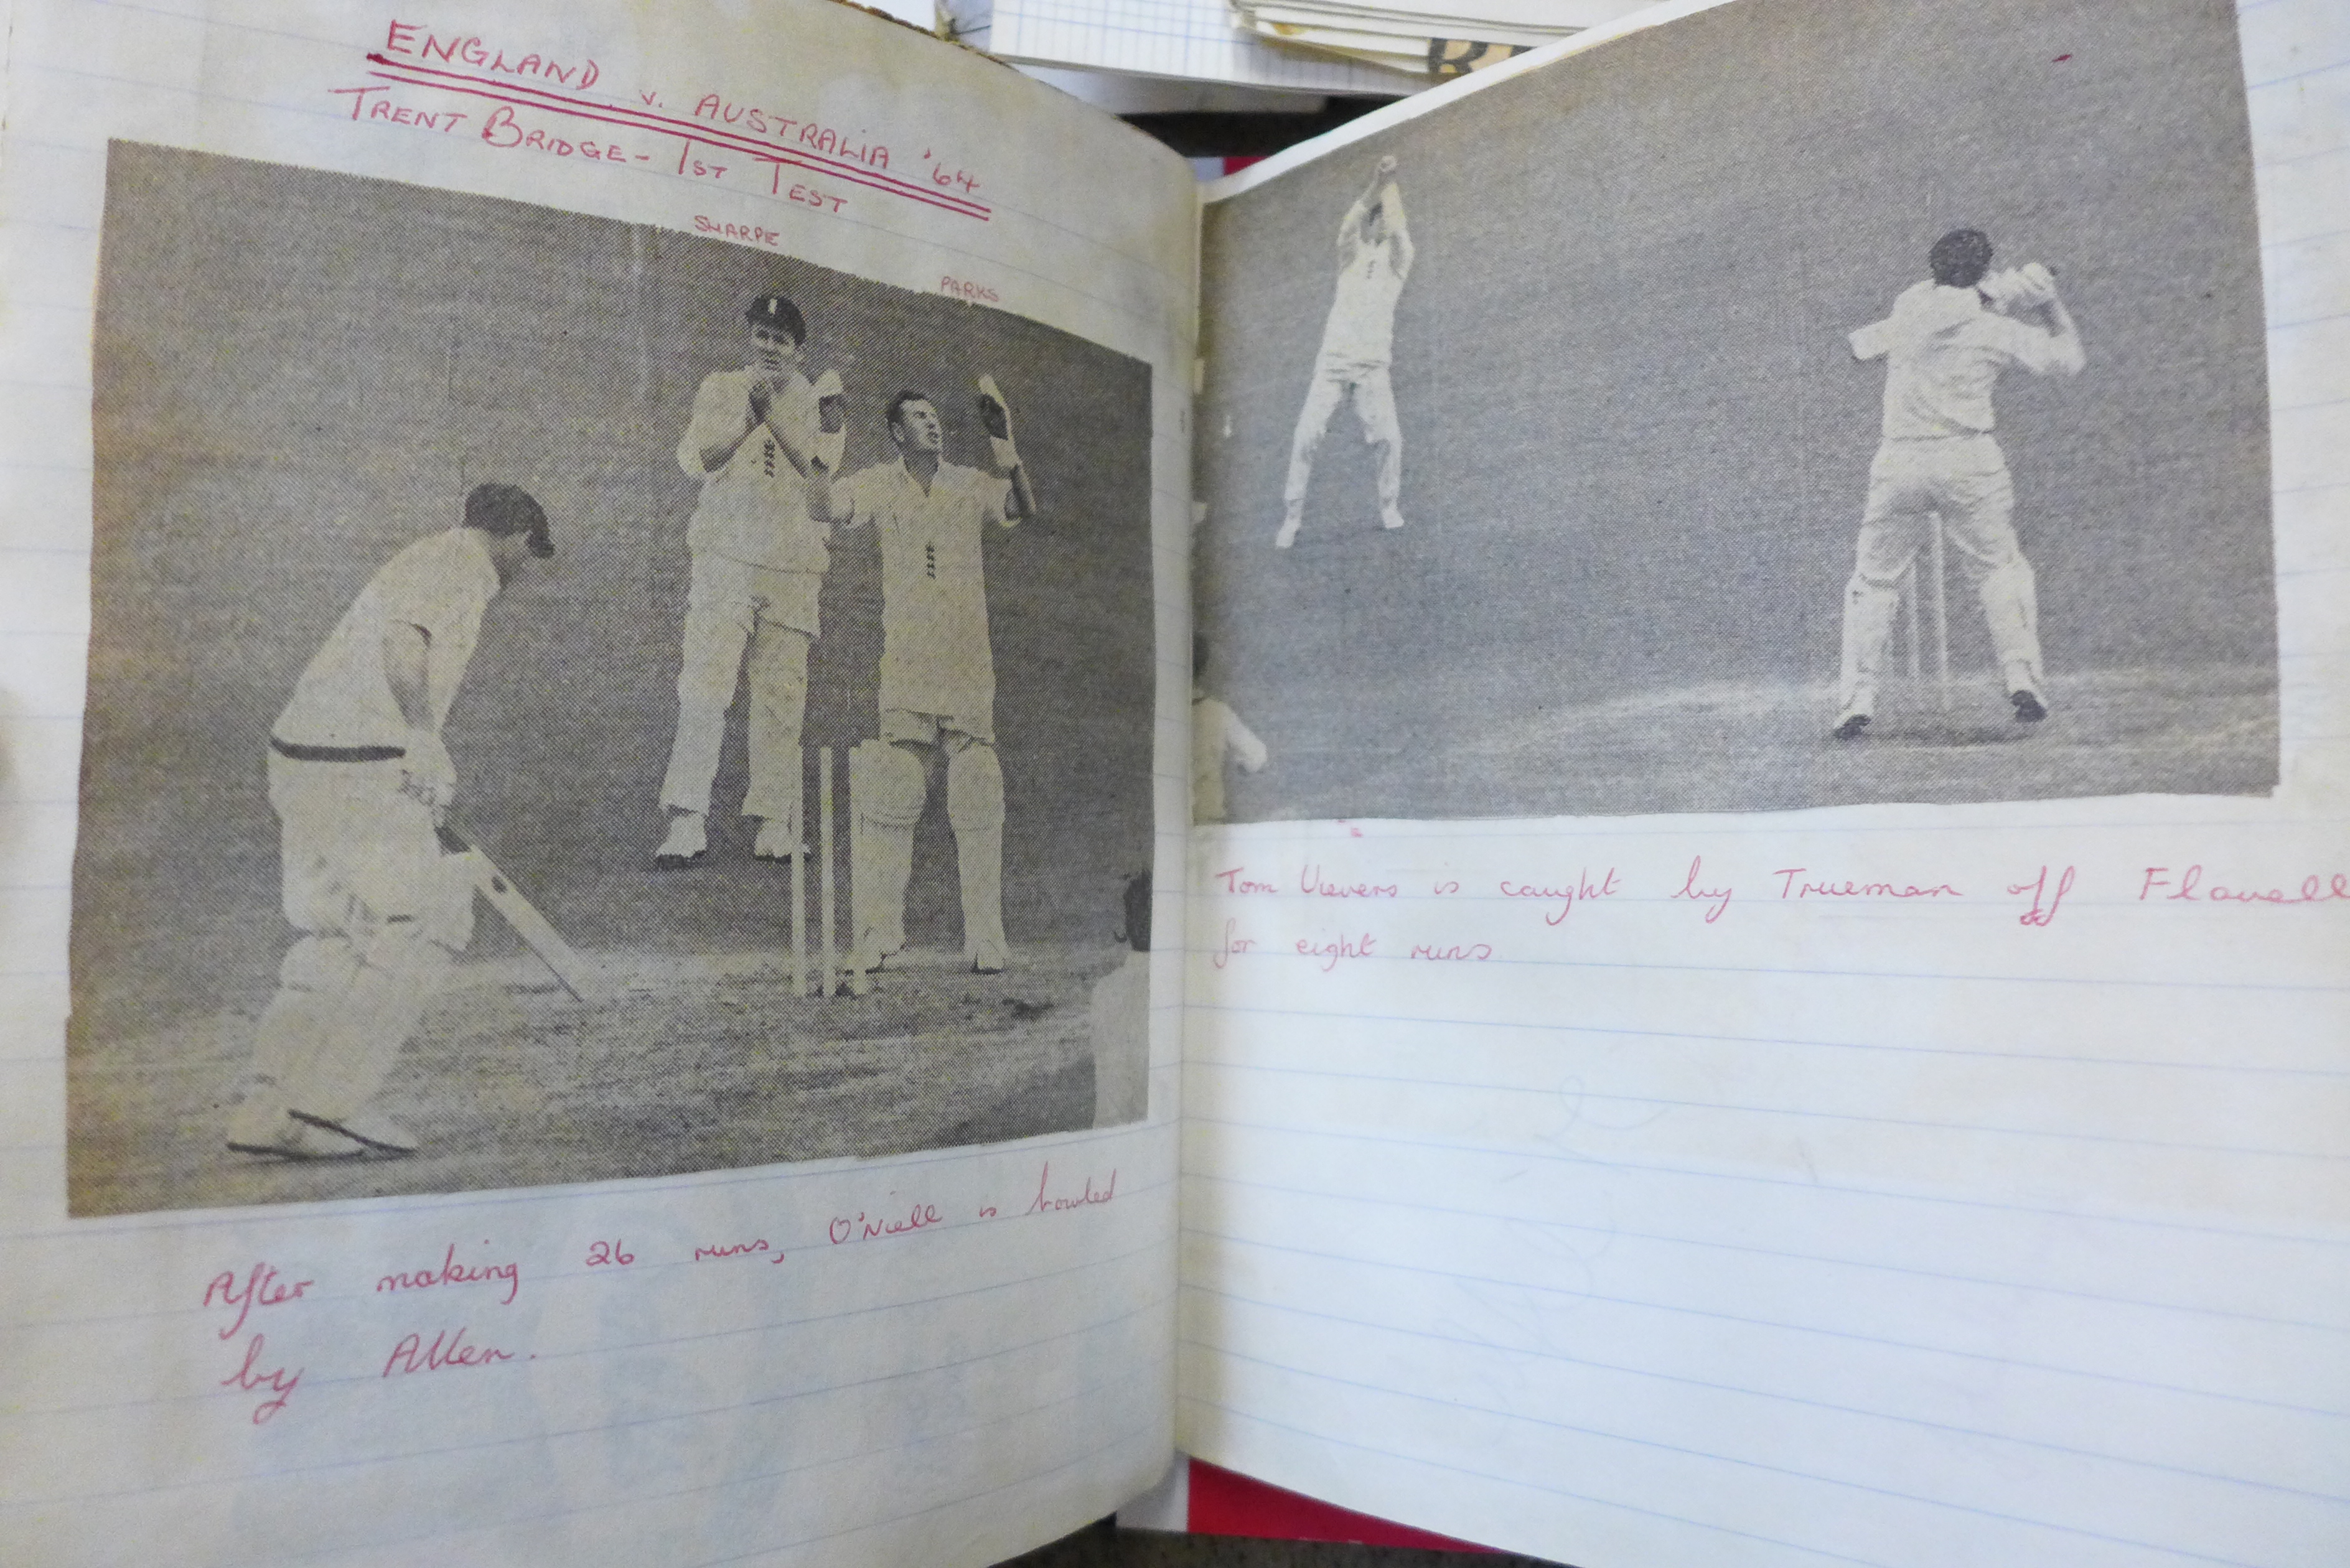 ENGLAND v. AUSTRALIA '64
TRENT BRIDGE - 1ST TEST
SHARPE
PARKS
After making 26 runs, O'Niell is bowled
by Allen.
R
Tom Vievers is caught by Trueman off Flavell
for eight runs